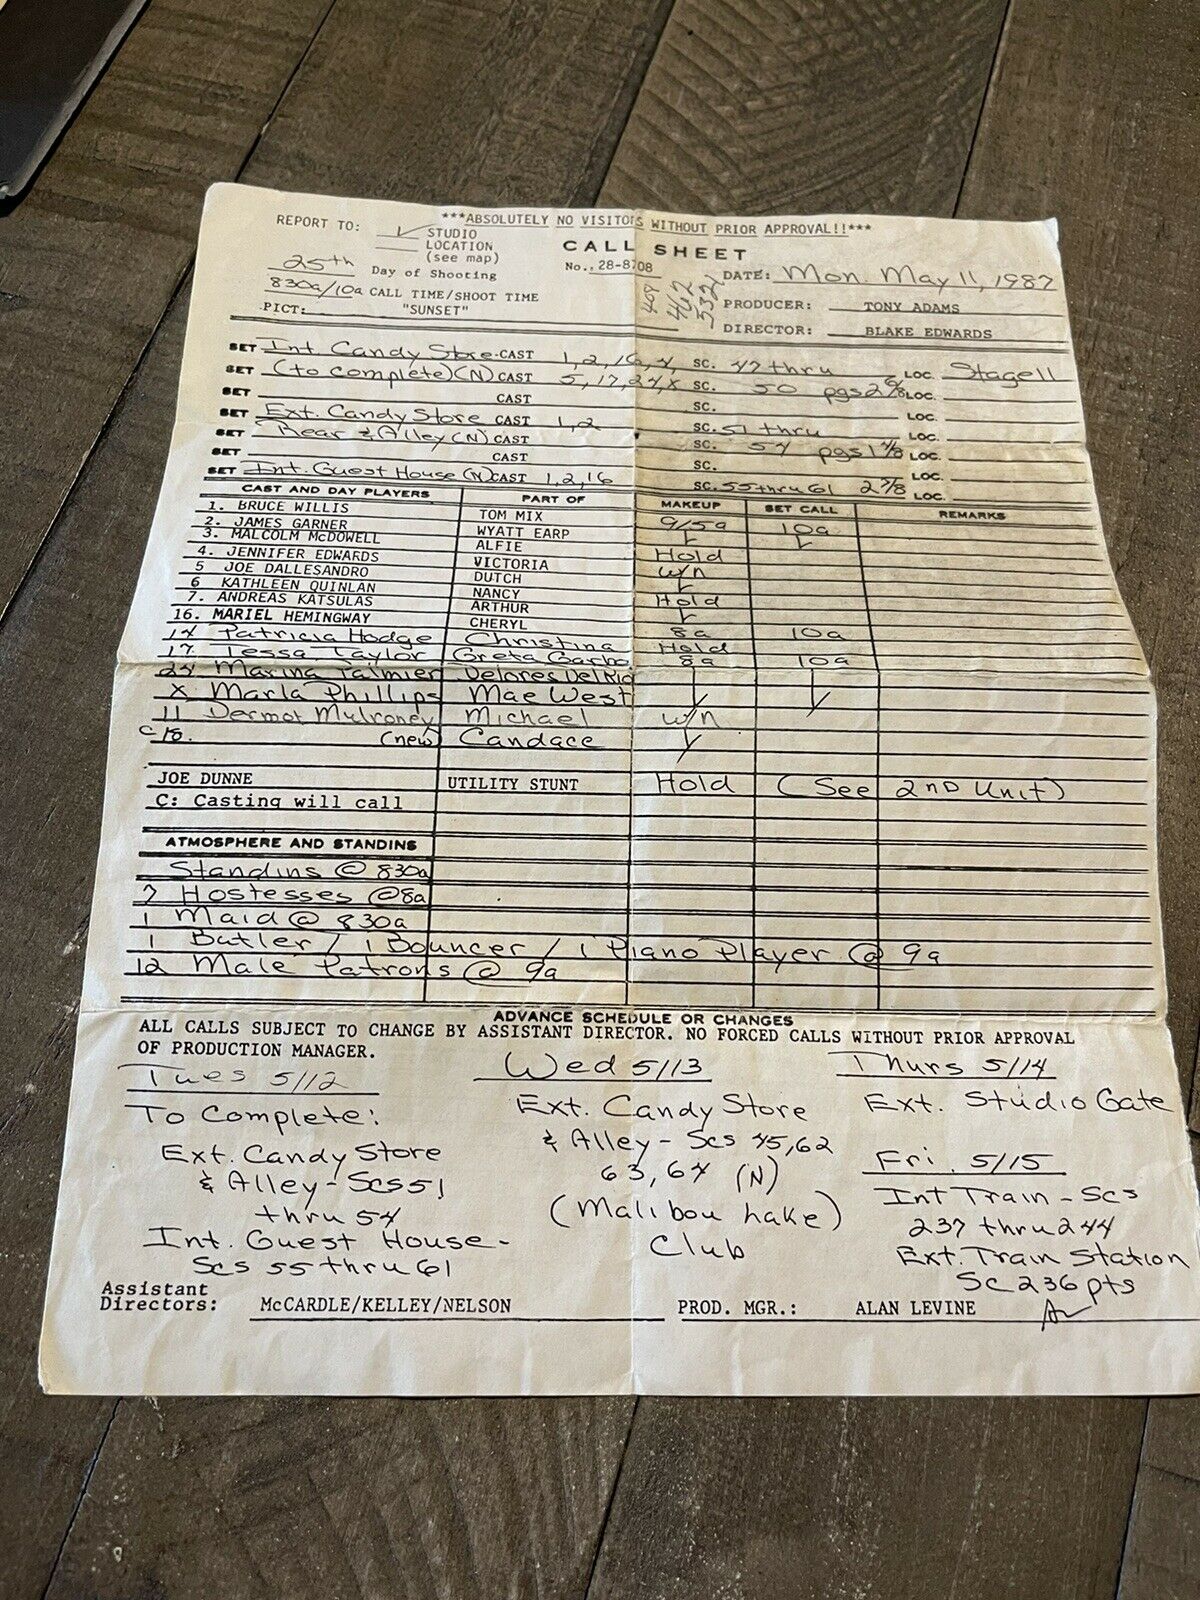 ***ABSOLUTELY NO VISITORS WITHOUT PRIOR APPROVAL!!***
REPORT TO: ✓ STUDIO
LOCATION
(see map)
CALL SHEET
No.: 28-8708
25th Day of Shooting
DATE: Mon. May 11, 1987
830a/10a CALL TIME/SHOOT TIME
PRODUCER: TONY ADAMS
PICT: "SUNSET"
DIRECTOR: BLAKE EDWARDS
SET Int. Candy Store CAST 1, 2, 16, 4, SC. 47 thru LOC. Stage 11
SET (to complete) (N) CAST 5, 17, 24, X SC. 50 pgs 2 6/8 LOC.
SET CAST SC. LOC.
SET Ext. Candy Store CAST 1, 2 SC. 51 thru LOC.
SET Rear & Alley (N) CAST SC. 54 pgs 1 4/8 LOC.
SET CAST SC. LOC.
SET Int. Guest House (N) CAST 1, 2, 16 SC. 55 thru 61 2 7/8 LOC.
CAST AND DAY PLAYERS PART OF MAKEUP SET CALL REMARKS
1. BRUCE WILLIS TOM MIX 9/5a 10a
2. JAMES GARNER WYATT EARP ✓ ✓
3. MALCOLM McDOWELL ALFIE Hold
4. JENNIFER EDWARDS VICTORIA w/n
5 JOE DALLESANDRO DUTCH ✓
6 KATHLEEN QUINLAN NANCY Hold
7. ANDREAS KATSULAS ARTHUR ✓
16. MARIEL HEMINGWAY CHERYL 8a 10a
14 Patricia Hodge Christina Hold
17 Tessa Taylor Greta Garbo 8a 10a
24 Marina Palmier Delores Del Rio
X Marla Phillips Mae West ✓ ✓
11 Dermot Mulroney Michael w/n
C 18. (new) Candace ✓
JOE DUNNE UTILITY STUNT Hold (See 2ND Unit)
C: Casting will call
ATMOSPHERE AND STANDINS
Standins @ 830a
7 Hostesses @ 8a
1 Maid @ 830a
1 Butler / 1 Bouncer / 1 Piano Player @ 9a
12 Male Patrons @ 9a
ADVANCE SCHEDULE OR CHANGES
ALL CALLS SUBJECT TO CHANGE BY ASSISTANT DIRECTOR. NO FORCED CALLS WITHOUT PRIOR APPROVAL
OF PRODUCTION MANAGER.
Tues 5/12
To Complete:
Ext. Candy Store
& Alley - Scs 51
thru 54
Int. Guest House -
Scs 55 thru 61
Wed 5/13
Ext. Candy Store
& Alley - Scs 45, 62
63, 64 (N)
(Malibou Lake)
Club
Thurs 5/14
Ext. Studio Gate
Fri. 5/15
Int Train - Scs
237 thru 244
Ext. Train Station
Sc 236 pts
Assistant
Directors: McCARDLE/KELLEY/NELSON
PROD. MGR.: ALAN LEVINE